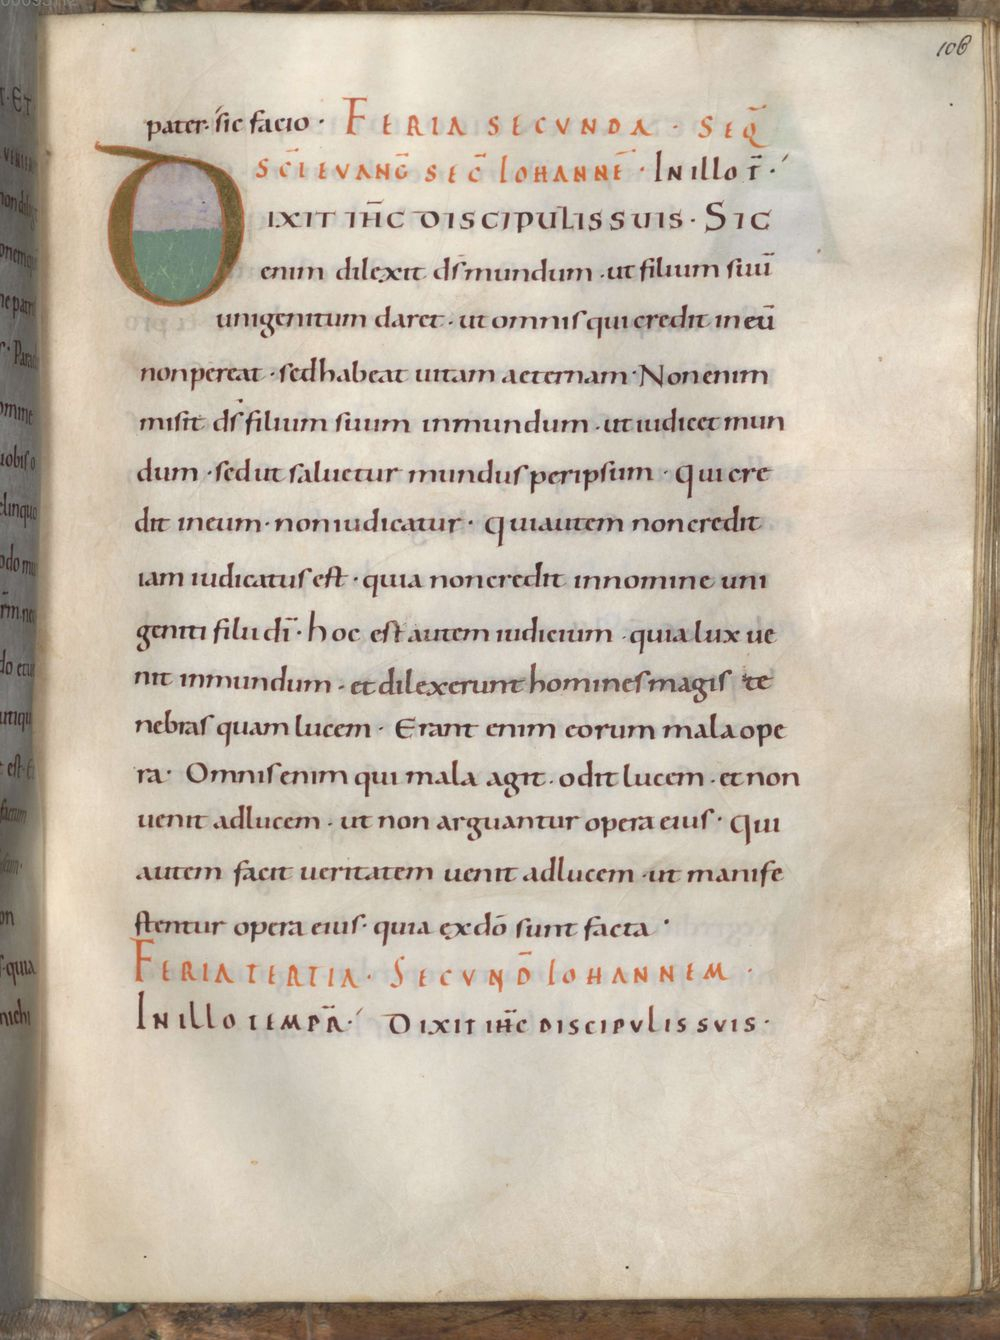 106
pater· sic facio · FERIA SECVNDA · SEQ̄
SC̄I EVANḠ SEC̄ IOHANNĒ · IN ILLO T̄ ·
DIXIT IH̄C DISCIPULIS SUIS · SIC
enim dilexit d̄s mundum · ut filium suū
unigenitum daret · ut omnis qui credit in eū
non pereat · sed habeat uitam aeternam · Non enim
misit d̄s filium suum in mundum · ut iudicet mun
dum · sed ut saluetur mundus per ipsum · Qui cre
dit in eum · non iudicatur · Qui autem non credit
iam iudicatus est · quia non credit in nomine uni
geniti filii dī · hoc est autem iudicium · quia lux ue
nit in mundum · et dilexerunt homines magis te
nebras quam lucem · Erant enim eorum mala ope
ra · Omnis enim qui mala agit · odit lucem · et non
uenit ad lucem · ut non arguantur opera eius · Qui
autem facit ueritatem uenit ad lucem · ut manife
stentur opera eius · quia ex dō sunt facta ·
FERIA TERTIA · SECVND̄ IOHANNEM ·
IN ILLO TEMPR̄ · DIXIT IH̄C DISCIPVLIS SVIS ·